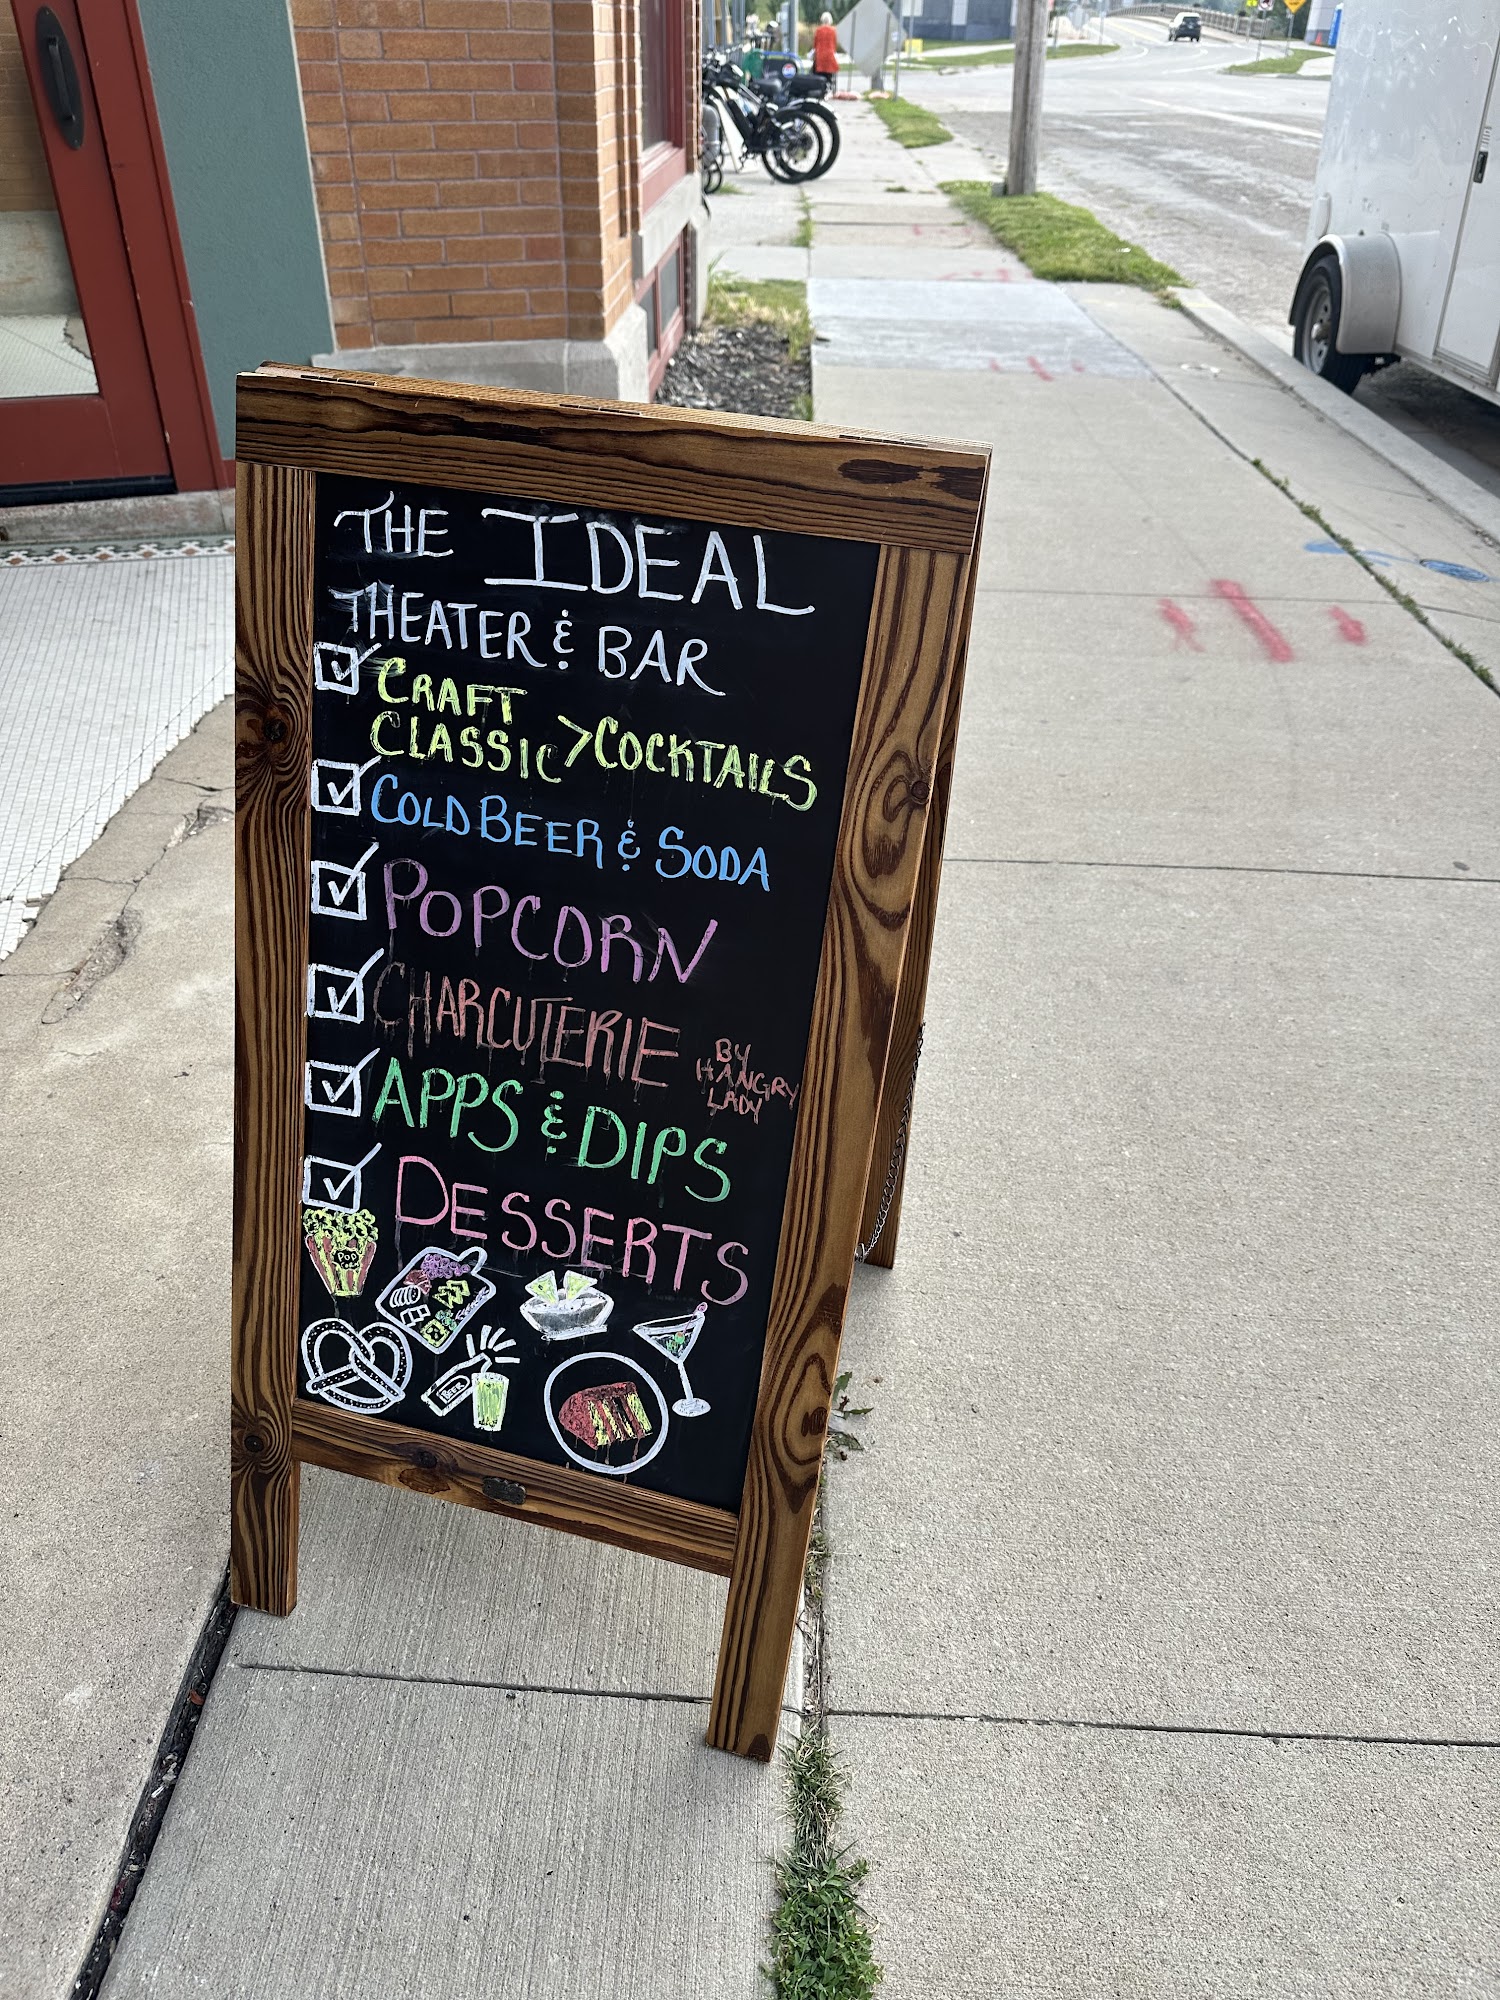 THE IDEAL
THEATER & BAR
CRAFT
CLASSIC > COCKTAILS
COLD BEER & SODA
POPCORN
CHARCUTERIE BY
HANGRY
LADY
APPS & DIPS
DESSERTS
POP
CORN
BEER